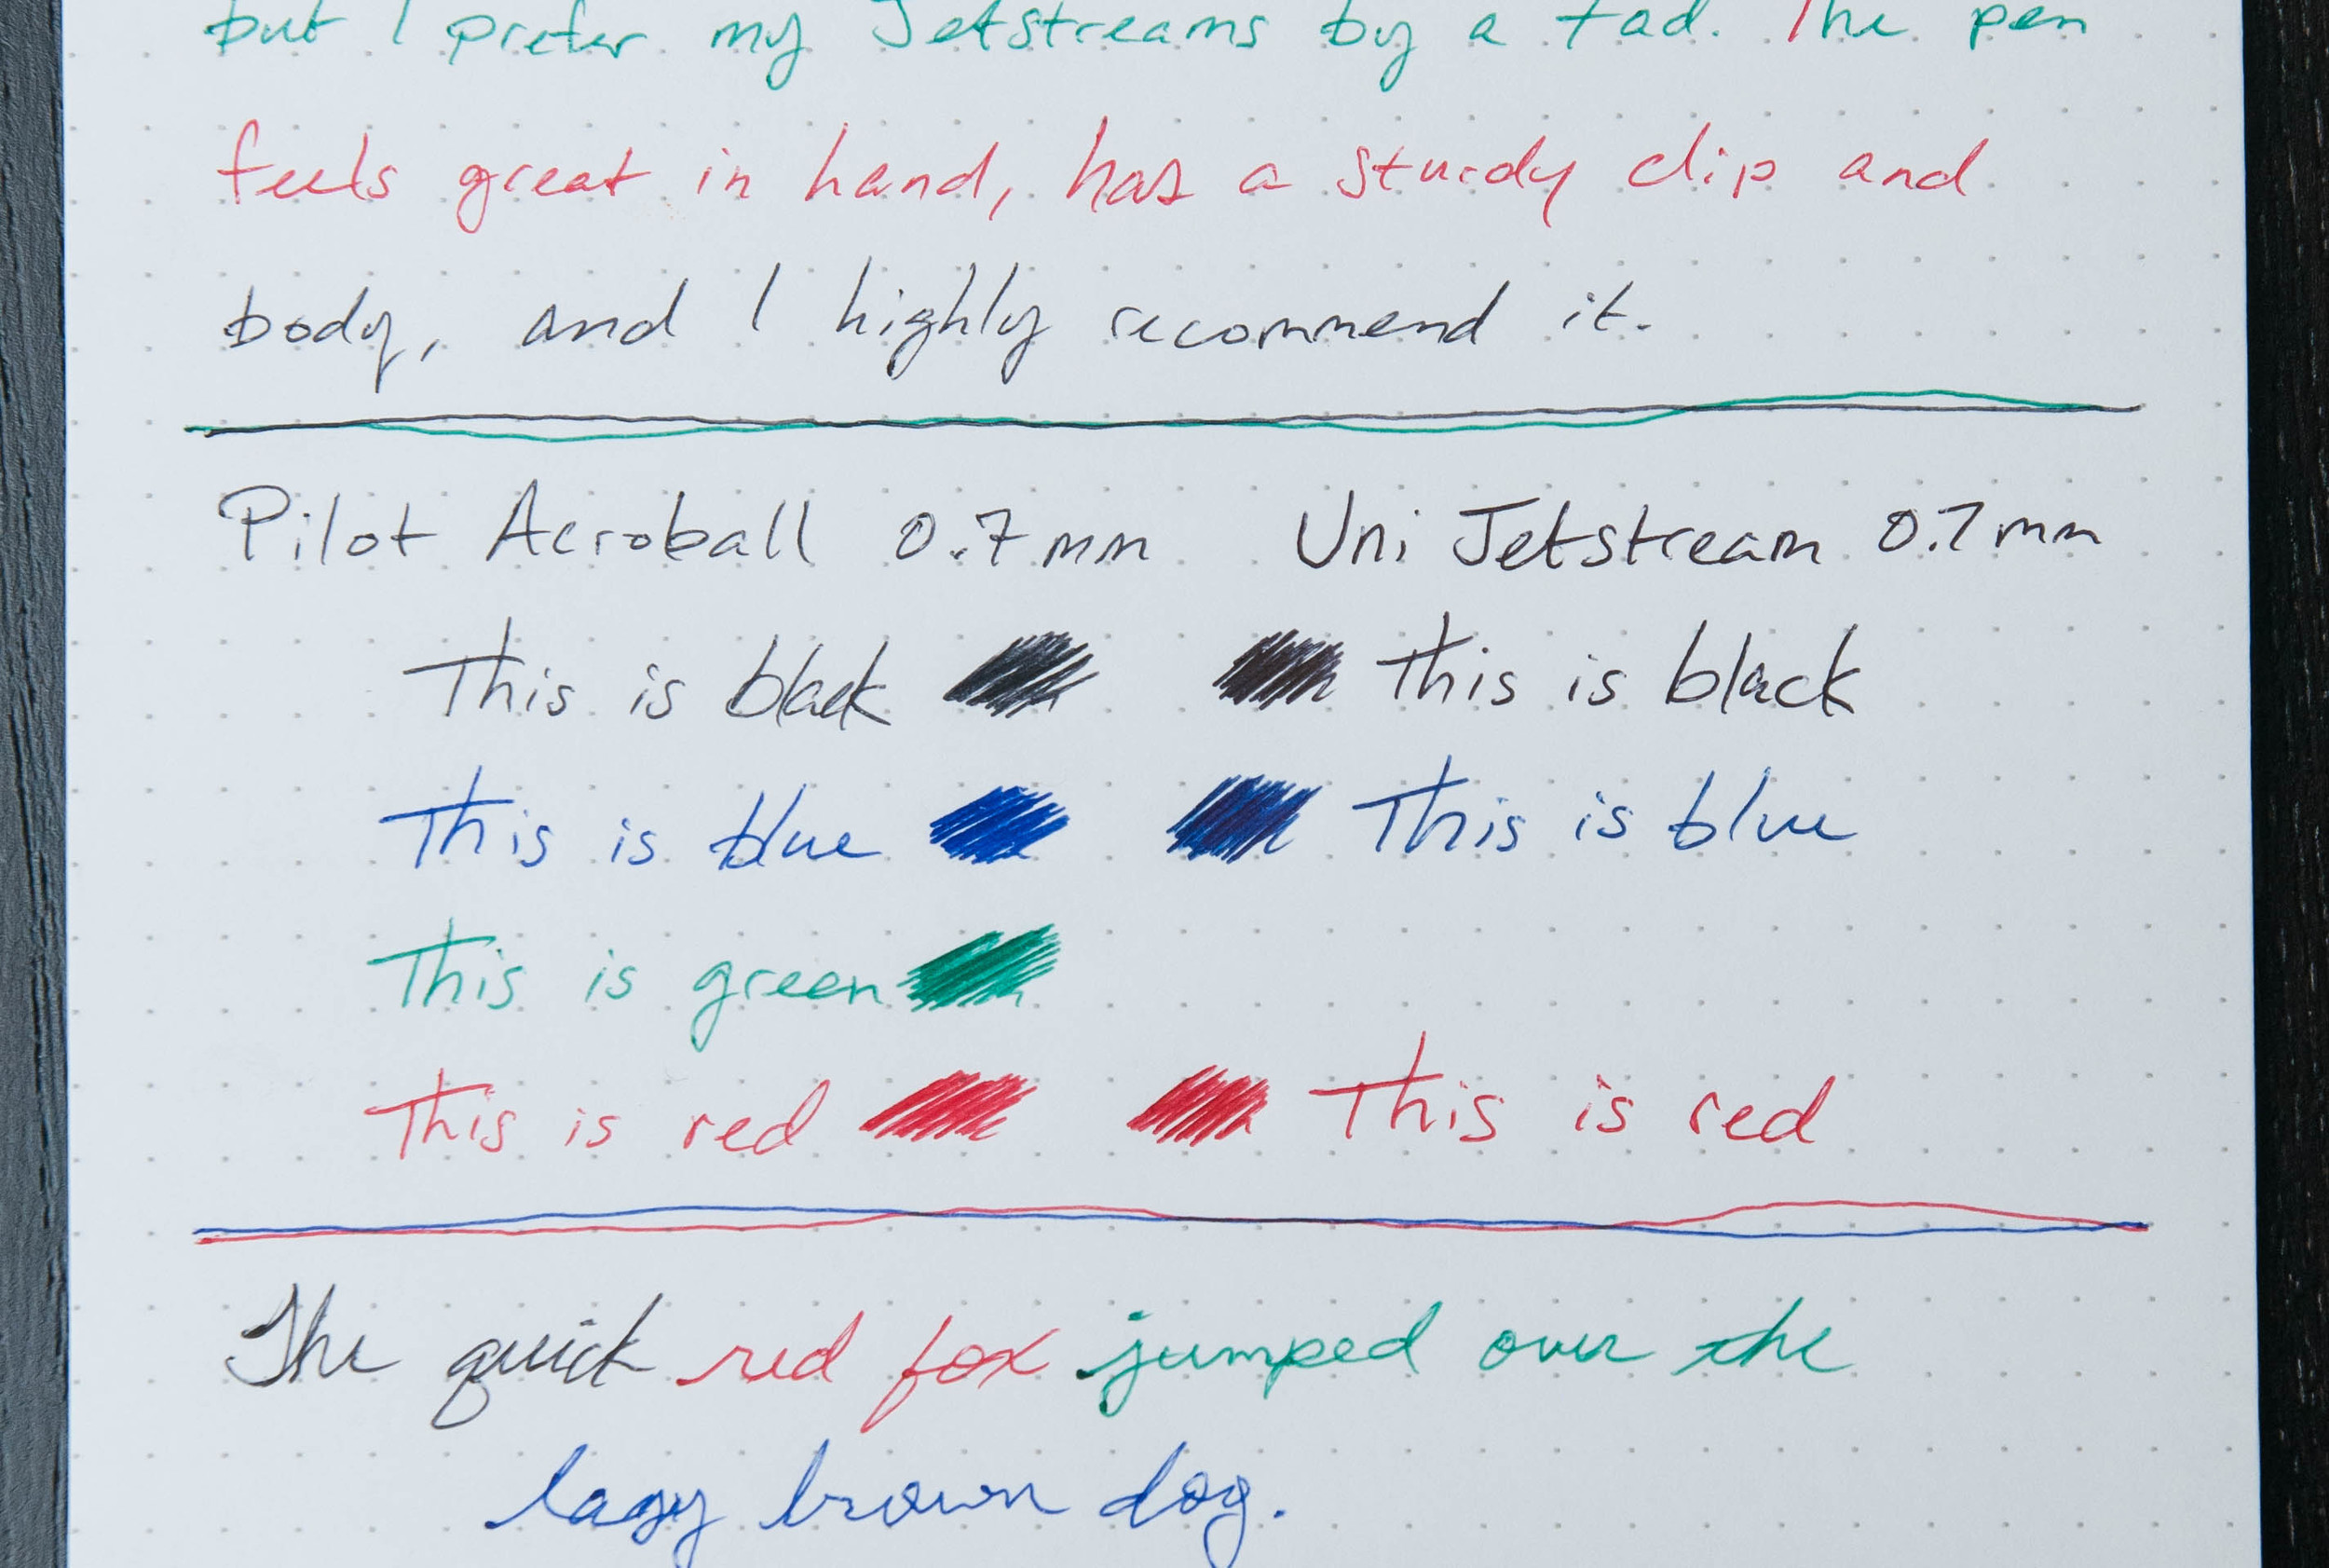 but I prefer my Jetstreams by a tad. The pen
feels great in hand, has a sturdy clip and
body, and I highly recommend it.
Pilot Acroball 0.7mm Uni Jetstream 0.7mm
This is black This is black
This is blue This is blue
This is green
This is red This is red
The quick red fox jumped over the
lazy brown dog.